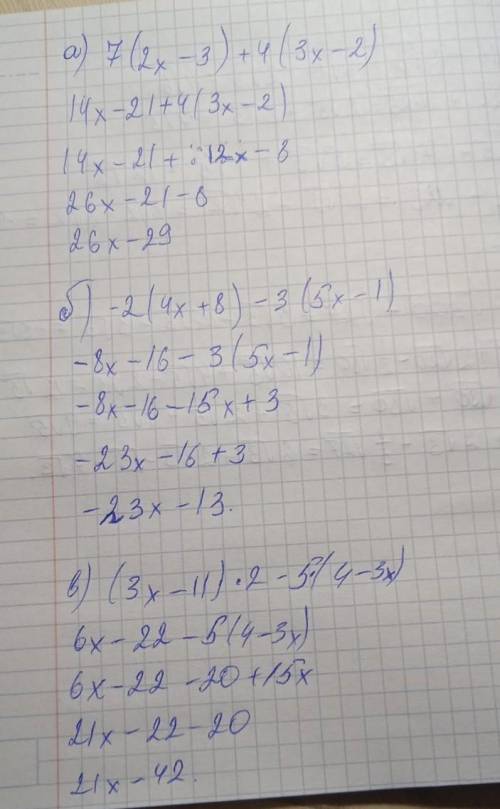 а) 7(2x-3)+4(3x-2)
14x-21+4(3x-2)
14x-21+12x-8
26x-21-8
26x-29
б) -2(4x+8)-3(5x-1)
-8x-16-3(5x-1)
-8x-16-15x+3
-23x-16+3
-23x-13.
в) (3x-11)·2-5·(4-3x)
6x-22-5(4-3x)
6x-22-20+15x
21x-22-20
21x-42.